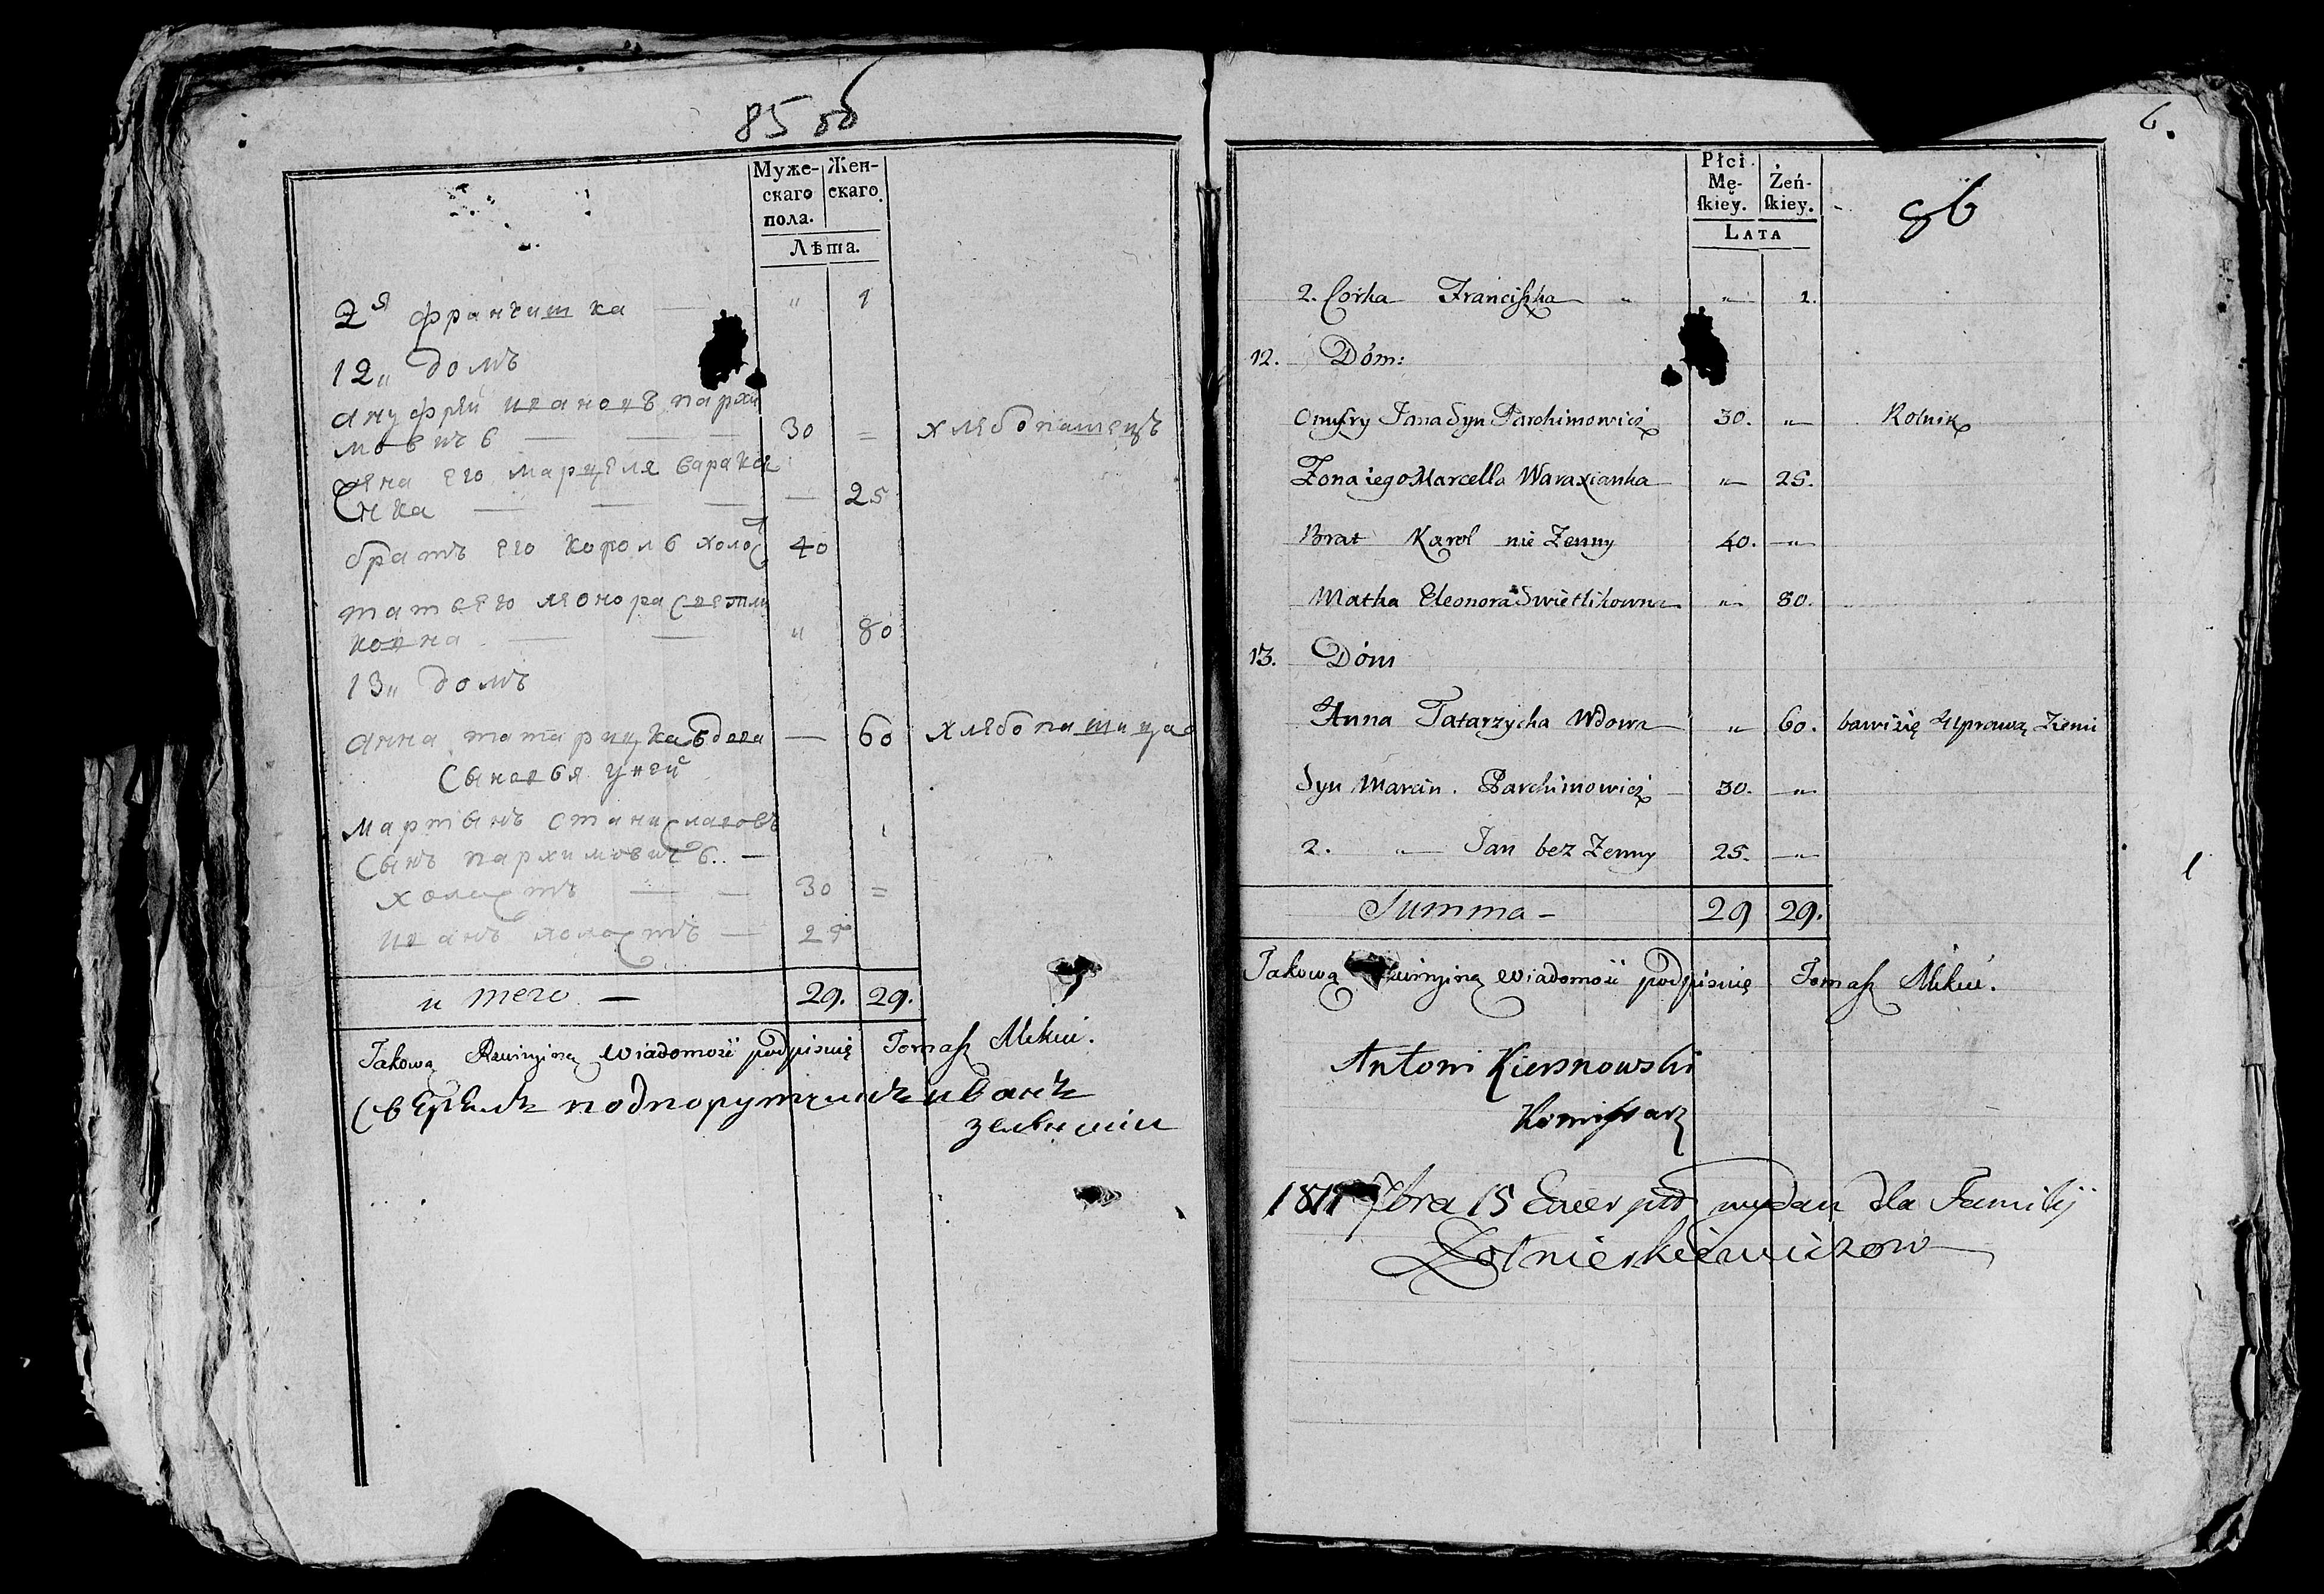 85 об
Муже- Жен-
скаго скаго.
пола.
Лѣта.
2я франчишка — " 1
12" домъ
ануфрѣй ивановъ пархи
мовичъ — — — 30 = хлѣбопашецъ
жена его марцеля варакся
нка — — — — 25
братъ его король холос 40
мать его леонора светли
ковна — — " 80
13" домъ
анна татарицка вдова — 60 хлѣбопашица
сыновья у ней
мартынъ станиславовъ
сынъ пархимовичъ. —
холастъ — — 30 =
иванъ холастъ — 25
и того — 29. 29.
Takową Rewizyiną wiadomość podpisuię Tomasz Mikuć.
сверелъ подпорутчикъ иванъ
6.
Płci
Mę- Żeń-
skiey. skiey.
LATA
86
2. Corka Franciszka " " 1.
12. Dóm:
Onufry Jana Syn Parchimowicz 30. " Rolnik
Zona iego Marcella Waraxianka " 25.
Brat Karol nie Zenny 40. "
Matka Eleonora Swietlikowna " 80.
13. Dóm
Anna Tatarzycha Wdowa " 60. bawi się Uprawą Ziemi
Syn Marcin. Parchimowicz 30. "
2. " Jan bez Zenny 25. "
Summa - 29 29.
Takową Rewizyiną wiadomość podpisuię Tomasz Mikuć.
Antoni Kiersnowski
Komissarz
7bra 15 wydan dla Familij
Zołnierkiewiczow